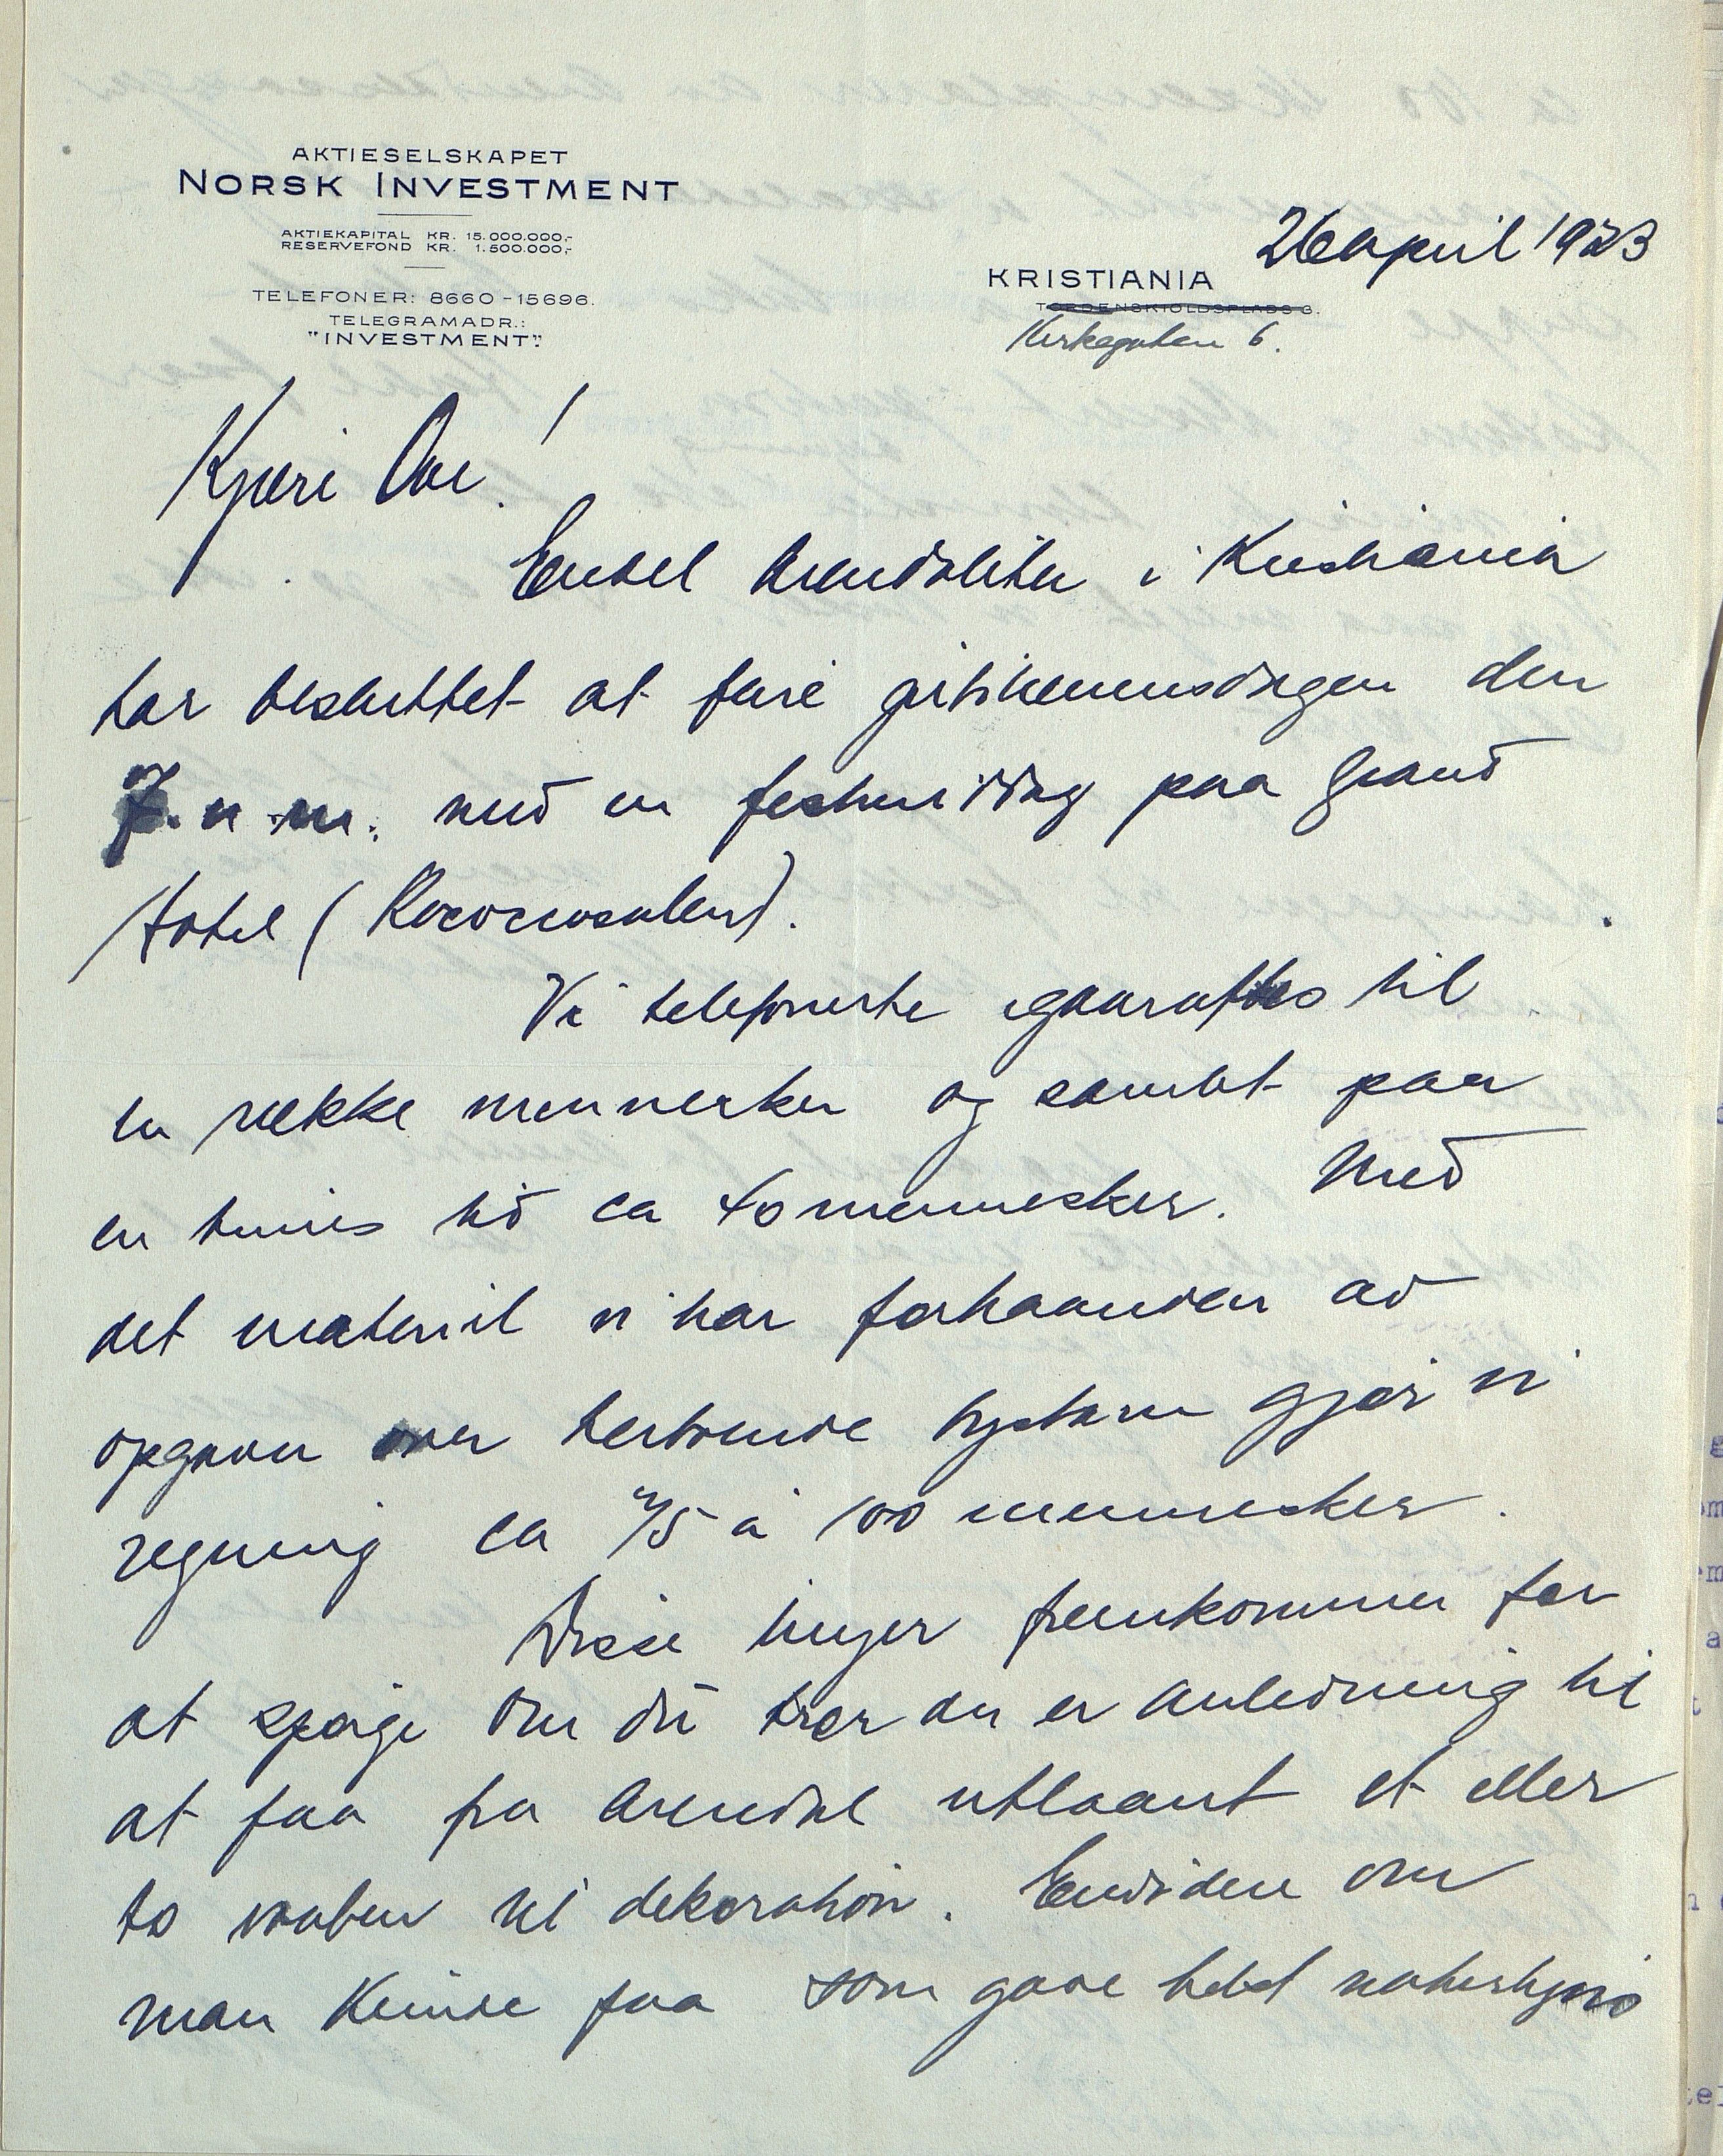 AKTIESELSKAPET
NORSK INVESTMENT
AKTIEKAPITAL KR. 15.000.000,-
RESERVEFOND KR. 1.500.000,-
TELEFONER: 8660-15696.
TELEGRAMADR.:
"INVESTMENT".
26 april 1923
KRISTIANIA
TORDENSKIOLDSPLADS 3.
Kirkegaten 6.
Kjære Ove!
Endel Arendalitter i Kristiania
har besluttet at feire jubilæumsdagen den
7. n. m. med en festmiddag paa Grand
Hotel (Rococcosalen).
Vi telefonerte igaaraftes til
en række mennesker og samlet paa
en times tid ca 40 mennesker. Med
det materiel vi har forhaanden av
opgaver over herboende bysbarn gjør vi
regning ca 75 à 100 mennesker.
Disse linjer fremkommer for
at spørge om du tror der er anledning til
at faa fra Arendal utlaant et eller
to vaaben til dekoration. Endvidere om
man kunde faa som gave helst naturligvis